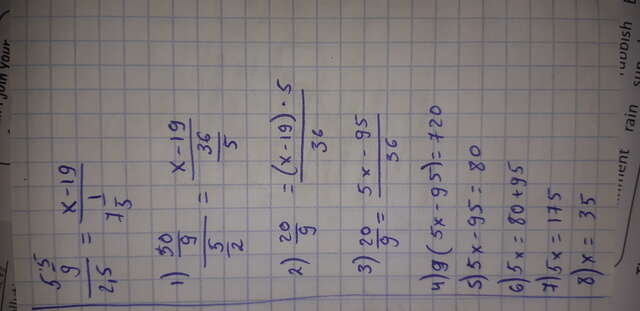 5 5/9 / 2,5 = x-19 / 7 1/5
1) 50/9 / 5/2 = x-19 / 36/5
2) 20/9 = (x-19)·5 / 36
3) 20/9 = 5x-95 / 36
4) 9(5x-95)=720
5) 5x-95=80
6) 5x=80+95
7) 5x=175
8) x=35
join your
rain
rubbish